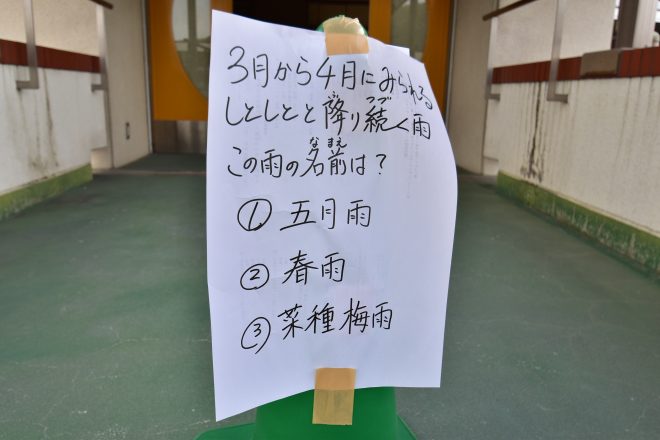 3月から4月にみられる
しとしとと降り続く雨
この雨の名前は?
① 五月雨
② 春雨
③ 菜種梅雨